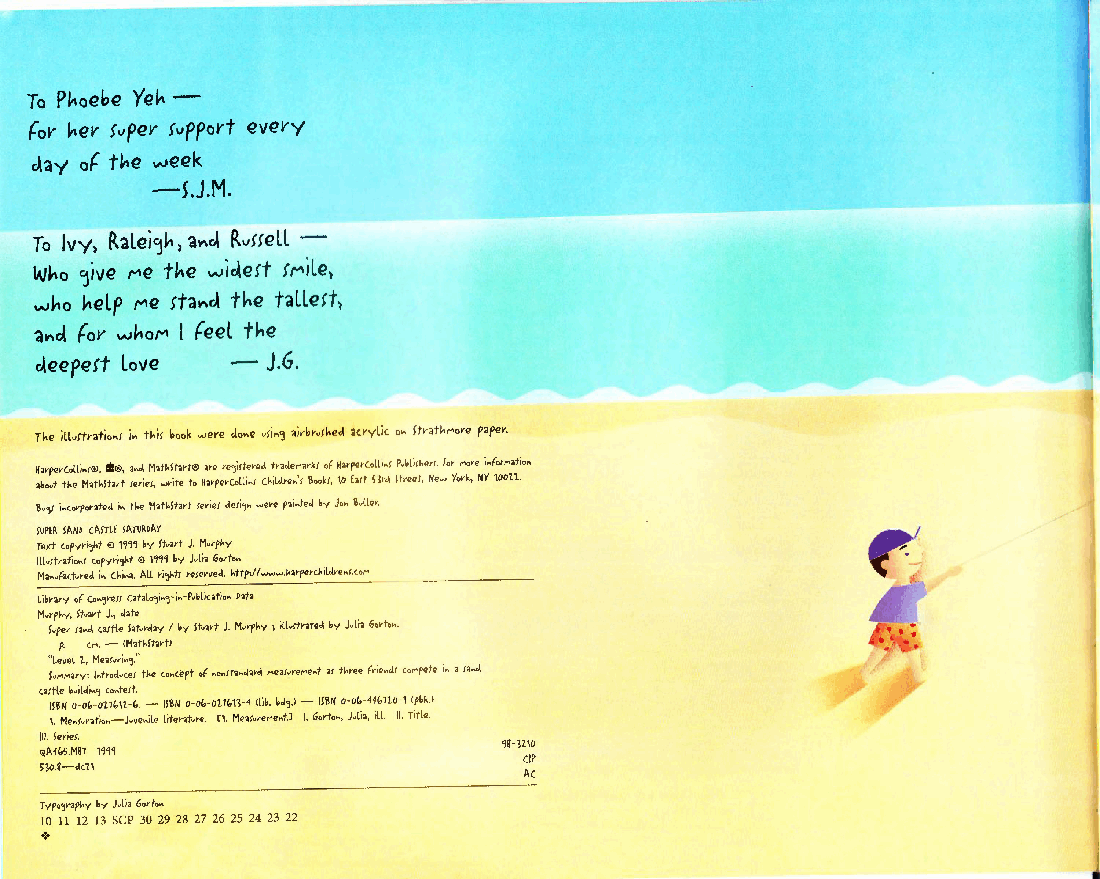 To Phoebe Yeh —
for her super support every
day of the week
—S.J.M.
To Ivy, Raleigh, and Russell —
Who give me the widest smile,
who help me stand the tallest,
and for whom I feel the
deepest love — J.G.
The illustrations in this book were done using airbrushed acrylic on Strathmore paper.
HarperCollins®, ®, and MathStart® are registered trademarks of HarperCollins Publishers. For more information
about the MathStart series, write to HarperCollins Children's Books, 10 East 53rd Street, New York, NY 10022.
Bugs incorporated in the MathStart series design were painted by Jon Buller.
SUPER SAND CASTLE SATURDAY
Text copyright © 1999 by Stuart J. Murphy
Illustrations copyright © 1999 by Julia Gorton
Manufactured in China. All rights reserved. http://www.harperchildrens.com
Library of Congress Cataloging-in-Publication Data
Murphy, Stuart J., date
Super sand castle Saturday / by Stuart J. Murphy ; illustrated by Julia Gorton.
p. cm. — (MathStart)
"Level 2, Measuring."
Summary: Introduces the concept of nonstandard measurement as three friends compete in a sand
castle building contest.
ISBN 0-06-027612-6. — ISBN 0-06-027613-4 (lib. bdg.) — ISBN 0-06-446720-1 (pbk.)
1. Mensuration—Juvenile literature. [1. Measurement.] I. Gorton, Julia, ill. II. Title.
III. Series.
QA465.M87 1999 98-3210
530.8—dc21 CIP
AC
Typography by Julia Gorton
10 11 12 13 SCP 30 29 28 27 26 25 24 23 22